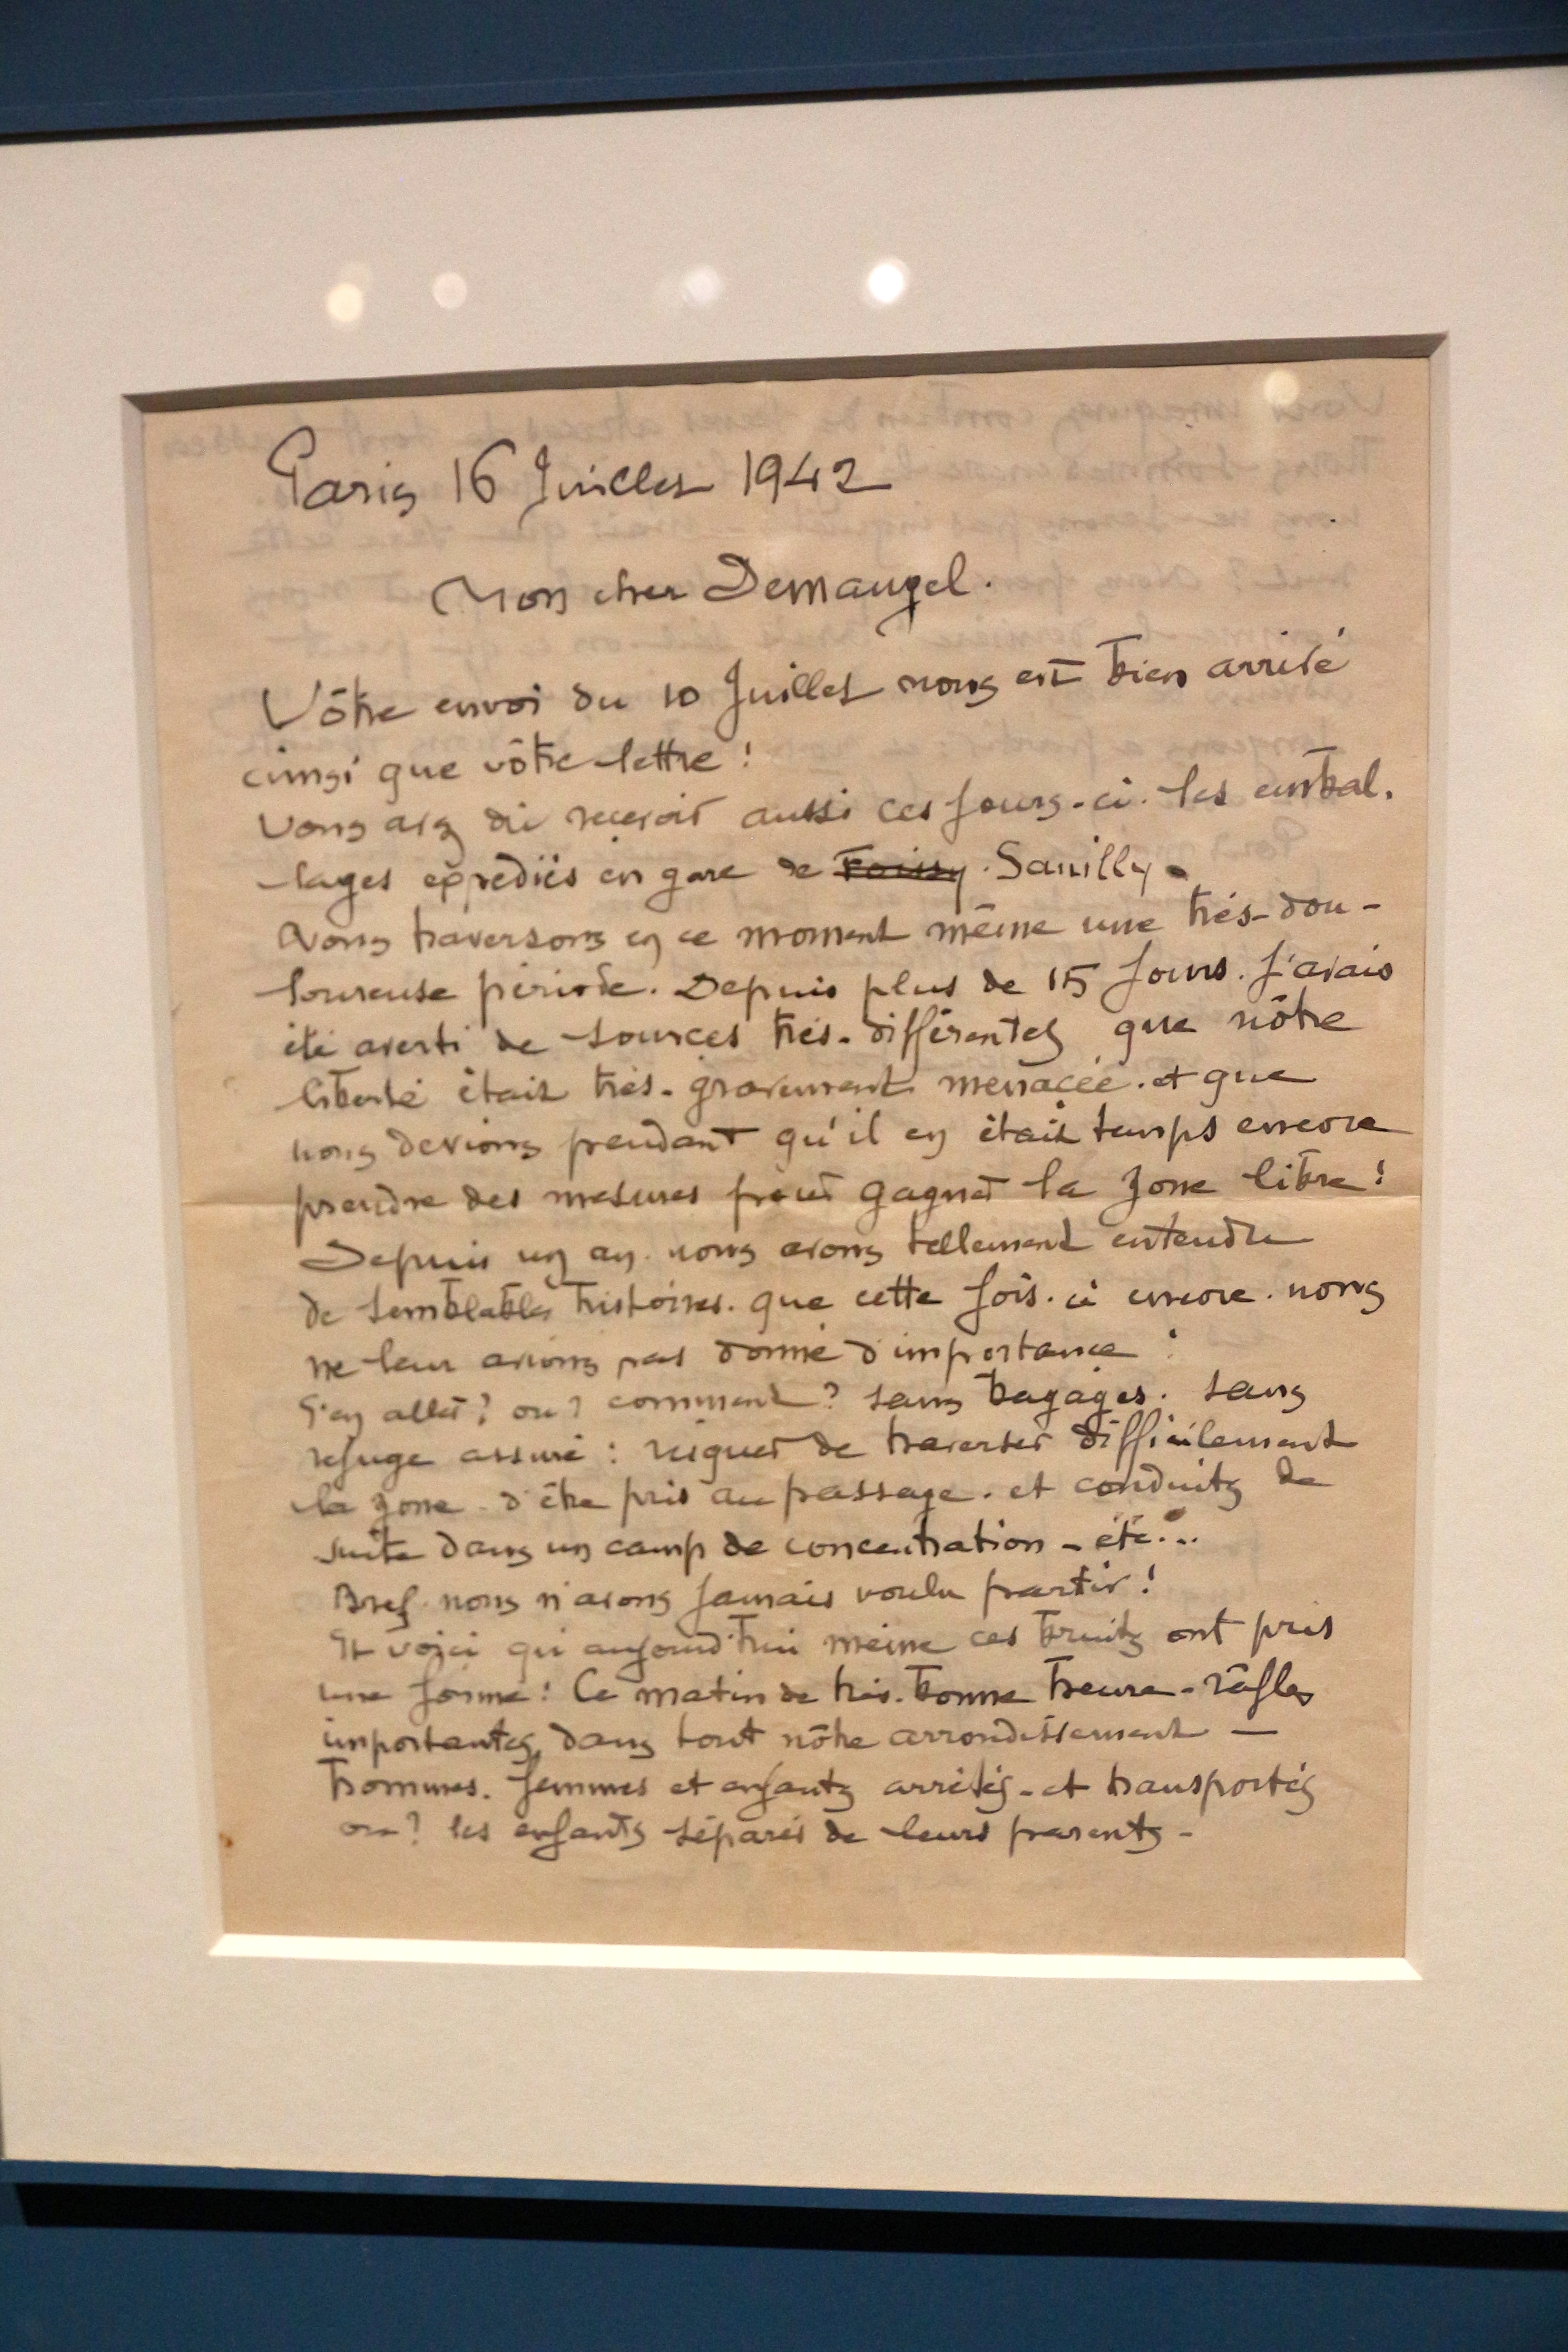 Paris 16 Juillet 1942
Mon cher Demangel.
Vôtre envoi du 10 Juillet nous est bien arrivé
ainsi que vôtre lettre !
Vous avez dû recevoir aussi ces jours-ci. les embal.
lages expediés en gare de Savilly.
Nous traversons en ce moment même une très-dou-
loureuse période. Depuis plus de 15 jours. j'avais
été averti de sources très-différentes que nôtre
liberté était très-gravement menacée. et que
nous devions pendant qu'il en était temps encore
prendre des mesures pour gagner la zone libre !
Depuis un an. nous avons tellement entendu
de semblables histoires. que cette fois-ci encore. nous
ne leur avions pas donné d'importance :
S'en aller ? ou ? comment ? sans bagages. sans
refuge assuré : risquer de traverser difficilement
la zone. d'être pris au passage. et conduits de
suite dans un camp de concentration - etc...
Bref. nous n'avons jamais voulu partir !
Et voici qu'aujourd'hui même ces bruits ont pris
une forme : Ce matin de très-bonne heure - râfles
importantes, dans tout nôtre arrondissement —
hommes. femmes et enfants arrêtés - et transportés
ou ? les enfants séparés de leurs parents -